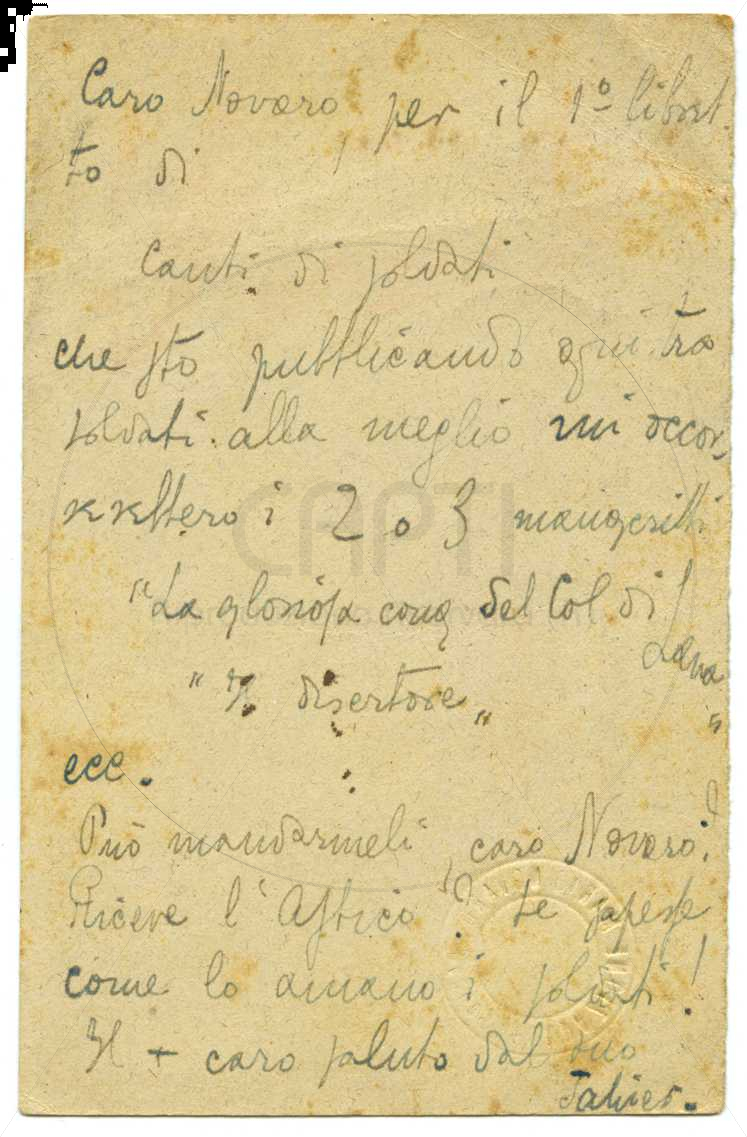 Caro Novaro per il 1º libret-
to di
Canti di soldati
che sto pubblicando qui tra
soldati alla meglio mi occor,
rebbero i 2 o 3 manoscritti
"La gloriosa conq del Col di
Lana
"Il disertore"
"
ecc.
Può mandarmeli caro Novaro?
Riceve l'Astico? Se sapesse
come lo amano i soldati!
Il + caro saluto dal suo
Jahier.
CAPTI